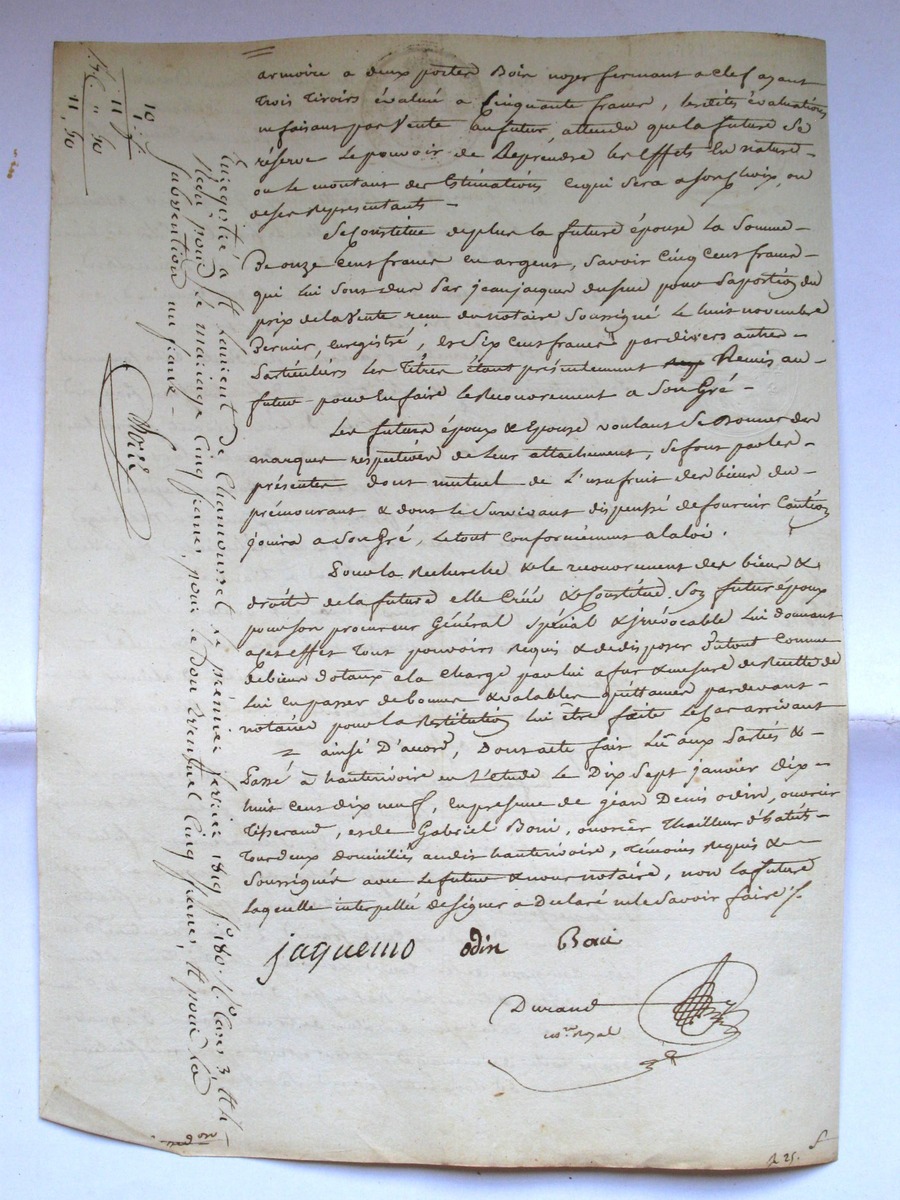 armoire a deux portes Bois noyer fermant a clef ayant
trois tiroirs évalué a Cinquante francs, lesdites évaluations
ne faisant pas Vente au futur, attendu que la future Se
réserve le pouvoir de Reprendre les Effets En nature
ou le montant des Estimations ce qui sera a son choix, ou
de ses Représentants —
Se Constitue de plus la future épouse la Somme
De onze Cens francs en argent, Savoir Cinq Cens francs
qui lui sont dus par jean jacques pour Sa portion du
prix de la Vente reçue du notaire Soussigné le huit novembre
Dernier, enregistré, les Six Cens francs par divers autres
particuliers les Titres étant présentement Remis au
futur pour En faire le Recouvrement a Son Gré —
Les future époux & Epouse voulant Se Donner des
marques respectives de leur attachement, Se font par les
présentes dont mutuel de L'usufruit des bieus du
prémourant & dont le Survivant dispensé de fournir Caution
jouira a Son Gré, le tout Conformément a la loi.
Pour la Recherche & le recouvrement des bieus &
droits de la future elle Créé & Constitue Son futur époux
pour Son procureur Général Spécial & irrévocable Lui donnant
a cet effet tout pouvoirs Requis & de disposer du tout Comme
de bieus dotaux à la Charge par lui a fur & mesure de Recette de
Lui en passer de bonnes & valables quittances par devant
notaire pour la Restitution Lui être faite le Cas arrivant
ainsé D'accord, Dont acte fait Lu aux Partiés &
Passé à hauterivoire en L'étude le Dix Sept janvier Dix
huit cens dix neuf, En présence de jéan Denis odin, ouvrier
Tisserand, et de Gabriel Boui, ouvrier Thailleur d'habits
Tous deux domiciliés audit hauterivoire, témoins Requis &
Soussignés avec le futur & nous notaire, non la future
Laquelle interpellée de signer a Déclaré ne le Savoir faire ./.
jaquemo odin Boui
Durand
no.re Royal
Enregistré à St Laurent de Chamousset le premier fevrier 1819 f.o 180. R.o Cases 3, et S.
Reçu pour le mariage Cinq francs, pour le don éventuel Cinq francs, et pour la
Subvention un franc —
10. f.
1.
11
" " 10
11, 10
R 25.